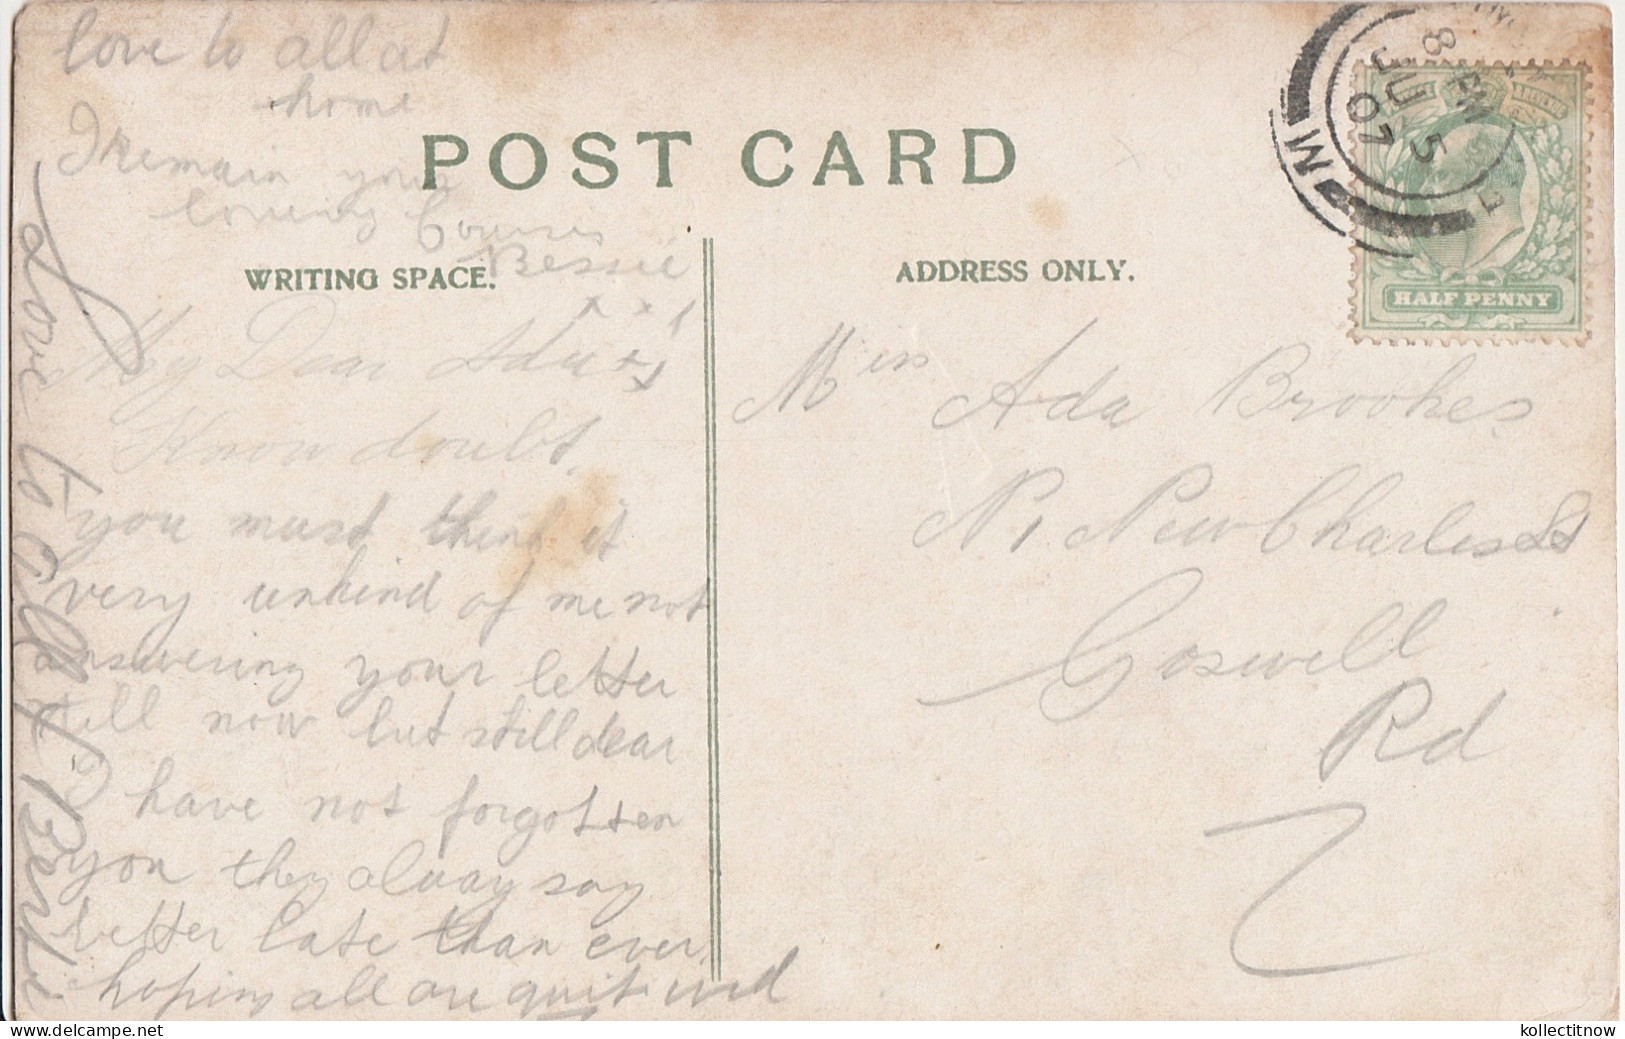 love to all at
home
I remain your
loving Cousin
Bessie
x x x
POST CARD
WRITING SPACE.
ADDRESS ONLY.
My Dear Ada
Know doubt
you must think it
very unkind of me not
answering your letter
till now but still dear
I have not forgotten
you they alway say
better late than ever
hoping all are quit
Love to all
Miss Ada Brookes
New Charles St
Goswell
Rd
8 PM
JU 5
07
HALF PENNY
kollectitnow
delcampe.net